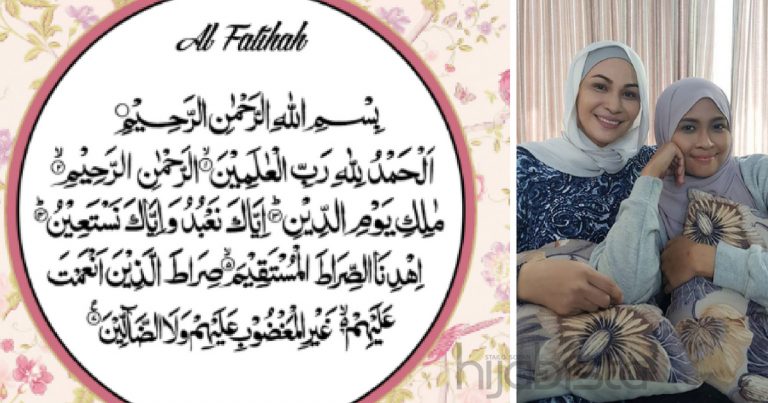 Al Fatihah
بِسْمِ اللّٰهِ الرَّحْمٰنِ الرَّحِيْمِ
اَلْحَمْدُ لِلّٰهِ رَبِّ الْعٰلَمِيْنَ ۙ﴿۱﴾ الرَّحْمٰنِ الرَّحِيْمِ ۙ﴿۲﴾
مٰلِكِ يَوْمِ الدِّيْنِ ؕ﴿۳﴾ اِيَّاكَ نَعْبُدُ وَاِيَّاكَ نَسْتَعِيْنُ ؕ﴿۴﴾
اِهْدِنَا الصِّرَاطَ الْمُسْتَقِيْمَ ۙ﴿۵﴾ صِرَاطَ الَّذِيْنَ اَنْعَمْتَ
عَلَيْهِمْ ۙ۬﴿۶﴾ غَيْرِ الْمَغْضُوْبِ عَلَيْهِمْ وَلَا الضَّآلِّيْنَ
hijabista